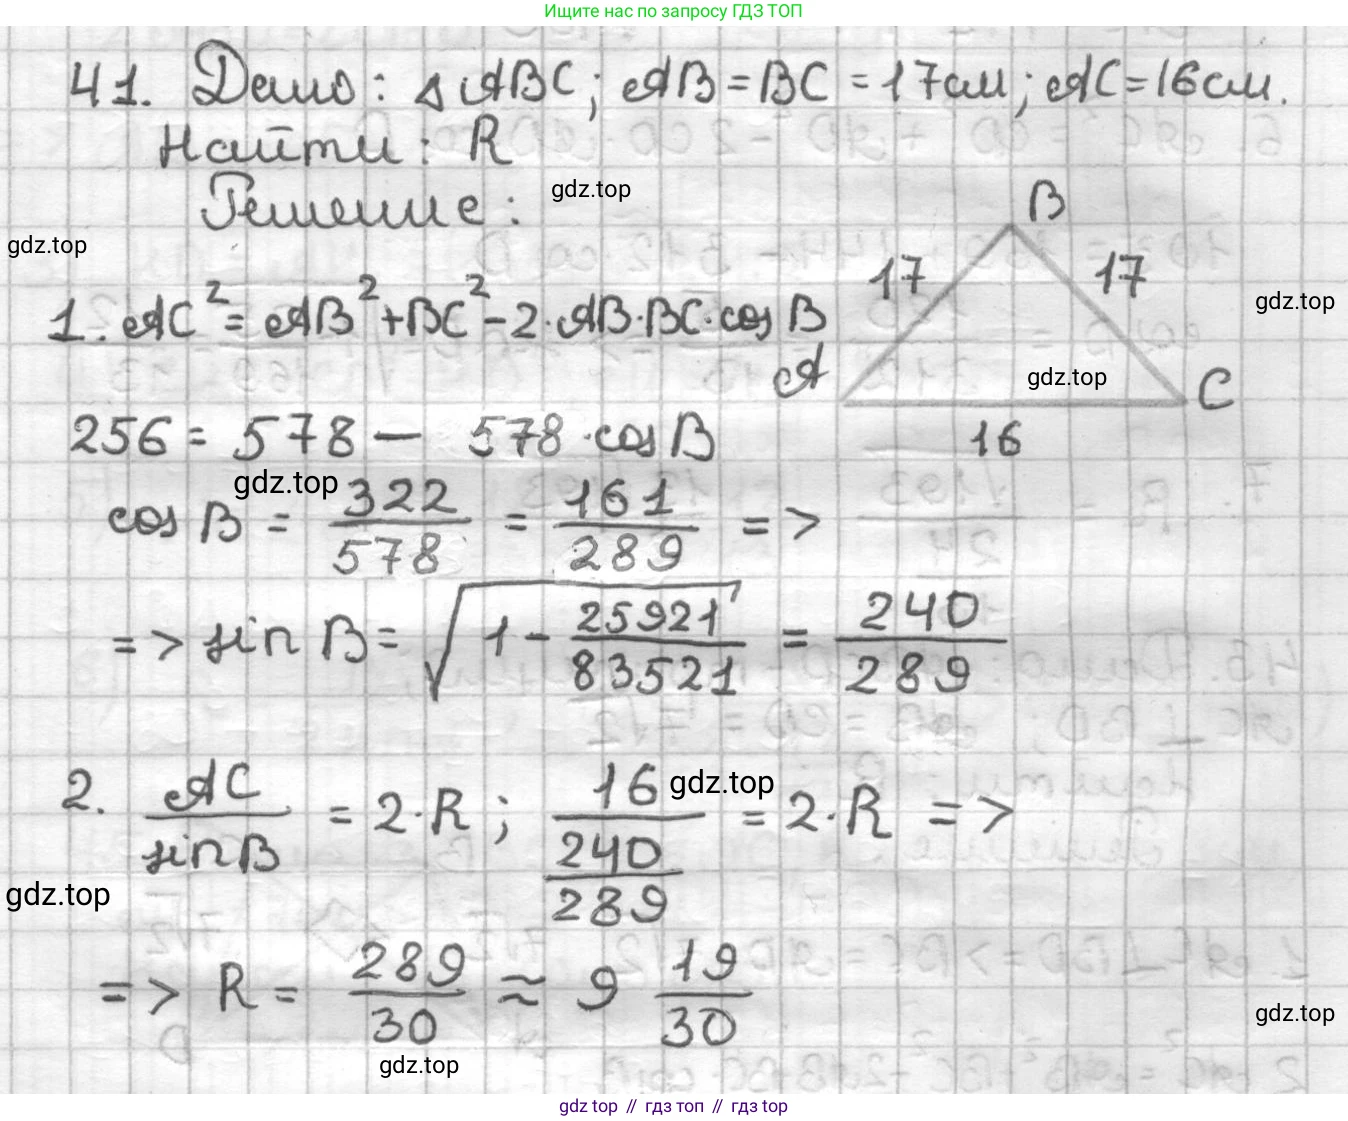 Ищите нас по запросу ГДЗ ТОП
41. Дано: △ ABC; AB = BC = 17 см; AC = 16 см.
Найти: R
Решение:
gdz.top
gdz.top
B
17
17
gdz.top
1. AC² = AB² + BC² - 2 · AB · BC · cos B
A
gdz.top
C
16
256 = 578 - 578 · cos B
gdz.top
cos B = 322/578 = 161/289 =>
=> sin B = √(1 - 25921/83521) = 240/289
2. AC/sin B = 2 · R ; 16/(240/289) = 2 · R =>
gdz.top
gdz.top
=> R = 289/30 ≈ 9 19/30
gdz.top
gdz.top
gdz top // гдз топ // гдз top